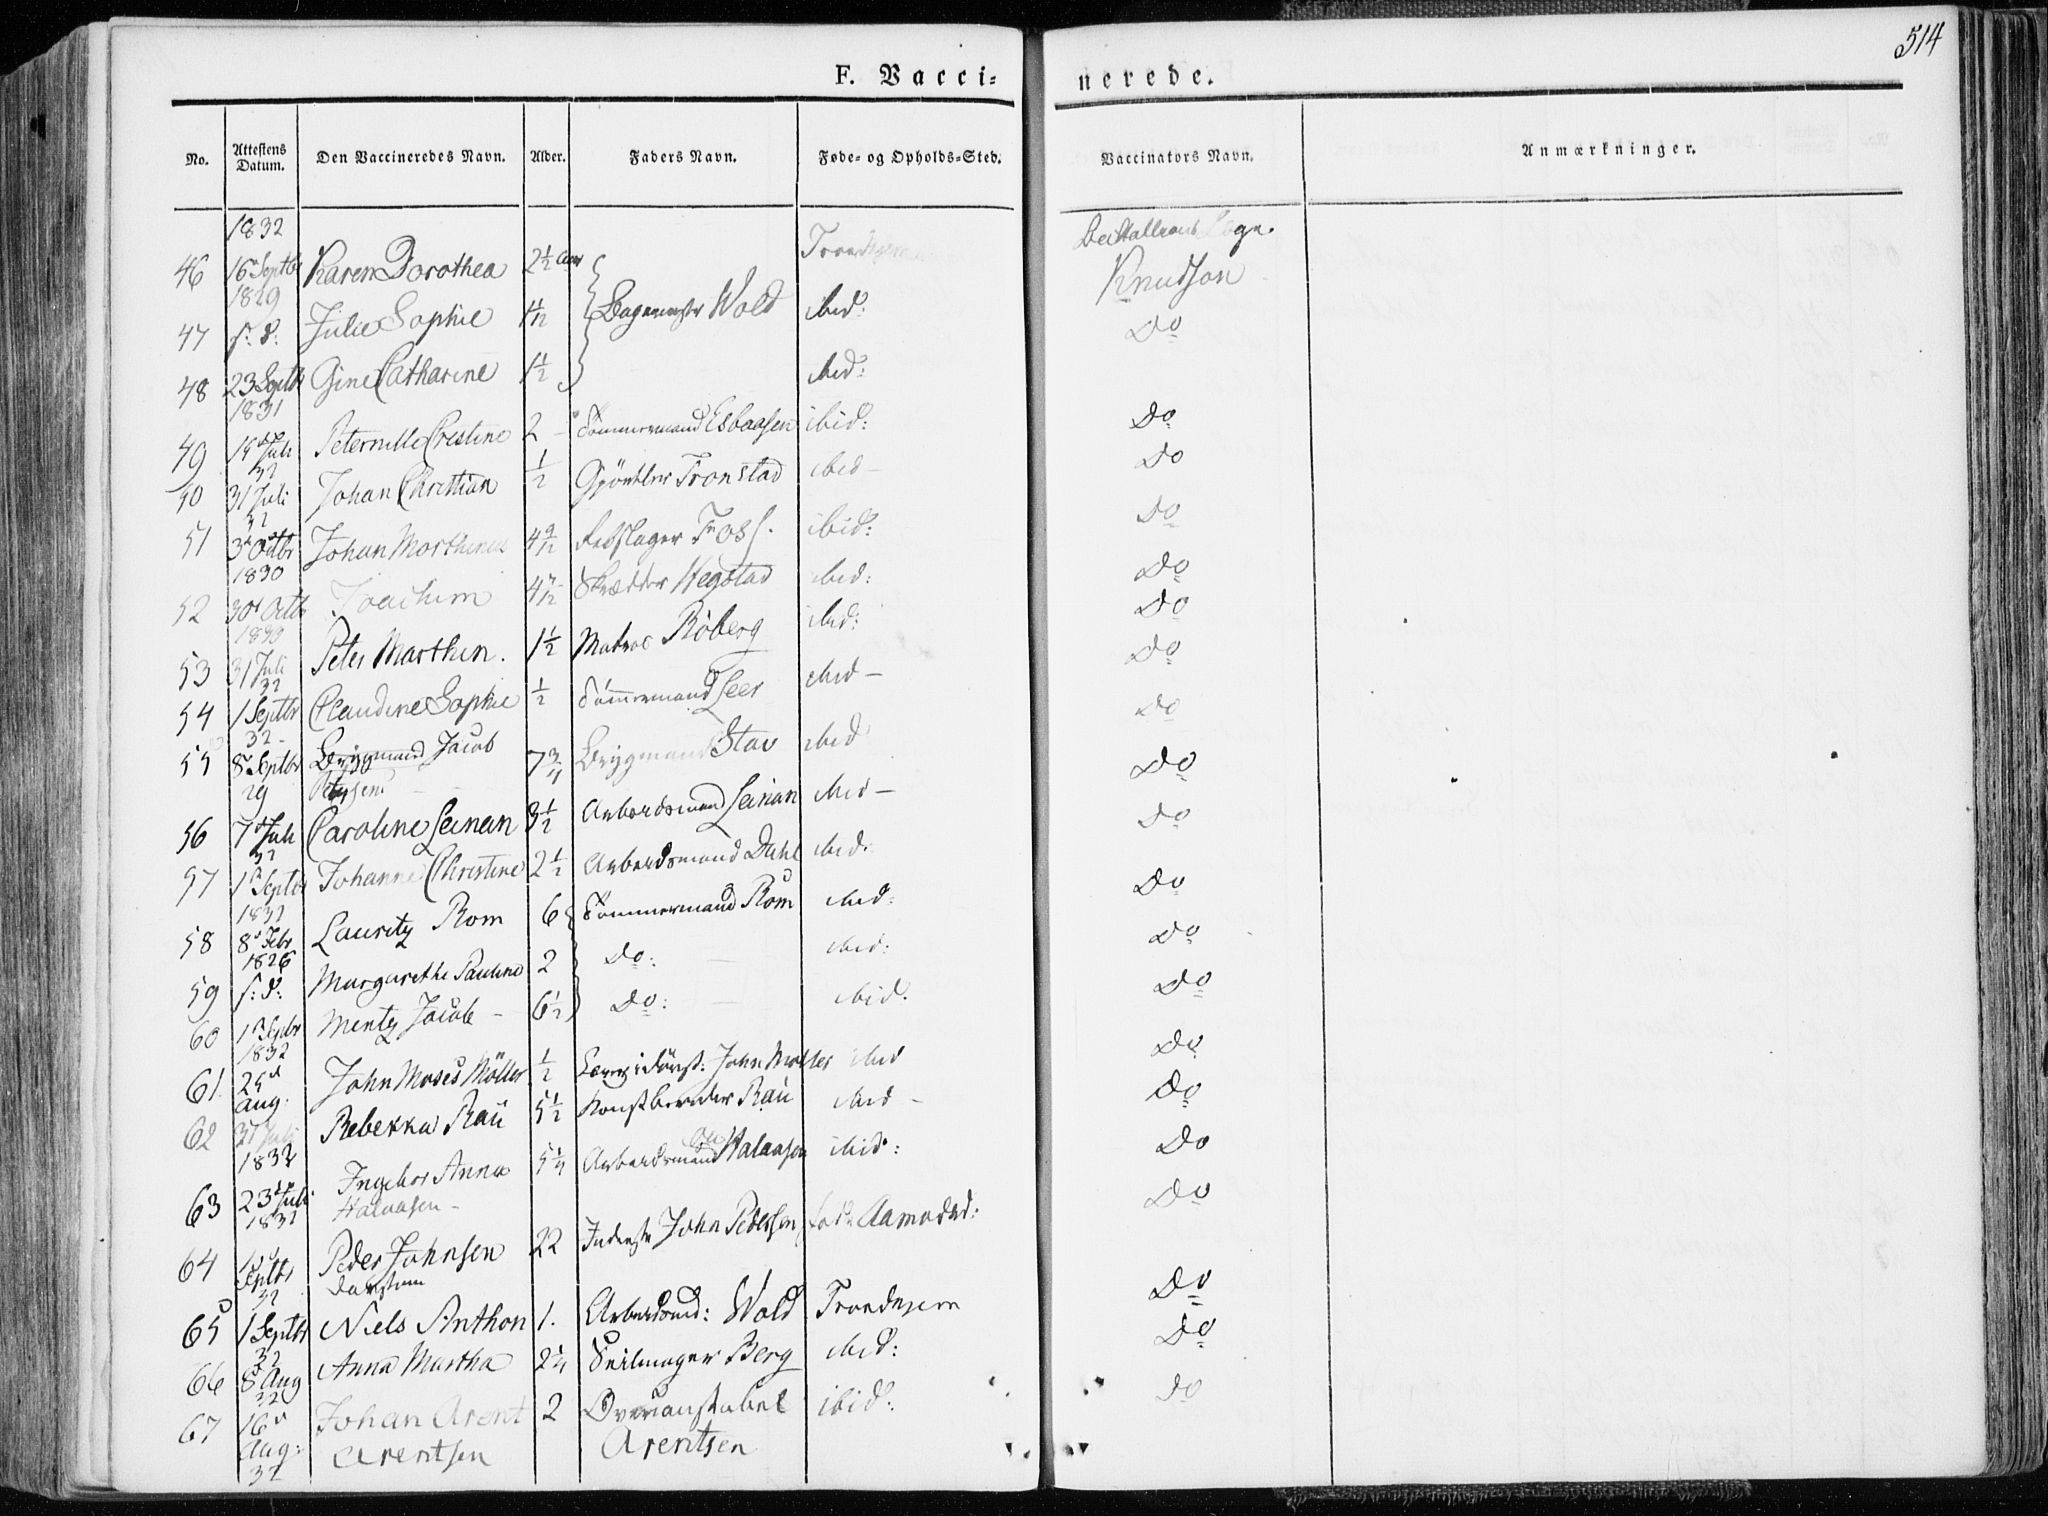 514
F. Vacci- nerede.
No. Attestens Datum. Den Vaccineredes Navn. Alder. Faders Navn. Føde- og Opholds-Sted. Vaccinators Navn. Anmærkninger.
1832
46 16 Septbr 1829 Karen Dorothea 2½ Aar Trondhjem Knudson
47 s: d: Julie Sophie 1 1/12 Wold ibid: Do
48 23 Septbr 1831 Gine Catharine 1½ ibid:
49 19 Juli 32 Peternille Crestine 2 Tömmermand Esbaasen ibid: Do
50 31 Juli 32 Johan Christian ½ Gjörtler Tronstad ibid Do
51 3 Octbr 1830 Johan Marthinus 4 9/12 Rebslager Foss. ibid: Do
52 30 Octbr 1830 Joachim 4 7/12 Skrædder Hegstad ibid: Do
53 31 Juli 32 Peter Marthin. 1½ Matros Röberg ibid: Do
54 1 Septbr 32 Claudine Sophie ½ Tömmermand Leer ibid Do
55 8 Septbr 29 Brygmand Jacob 7¾ Brygmand Stav ibid Do
56 7 Juli 32 Caroline Leinan 3½ Arbeidsmand Leinan ibid Do
57 1 Septbr 1832 Johanne Christine 2½ Arbeidsmand Dahl ibid: Do
58 8 Febr 1826 Lauritz Rom 6 Tömmermand Rom ibid: Do
59 s: d: Margarethe Pauline 2 Do: ibid: Do
60 1 Septbr 1832 Mentz Jacob 6½ Do: ibid. Do
61 25 Aug. John Moses Möller ½ John Möller ibid Do
62 31 Juli 1832 Rebekka Rau 5½ Rau ibid Do
63 23 Juli 1832 Ingebor Anna Halvasen 5¼ Arbeidsmand Halvasen ibid: Do
64 Septbr 32 Peder Johnsen 22 John Pedersen Do
65 1 Septbr 32 Niels Anthon 1. Arbeidsmd: Wold Trondhjem Do
66 8 Aug 32 Anna Martha 2¼ Seilmager Berg ibid: Do
67 16 Aug: 32 Johan Arent Arentsen 2 Arentsen ibid: Do